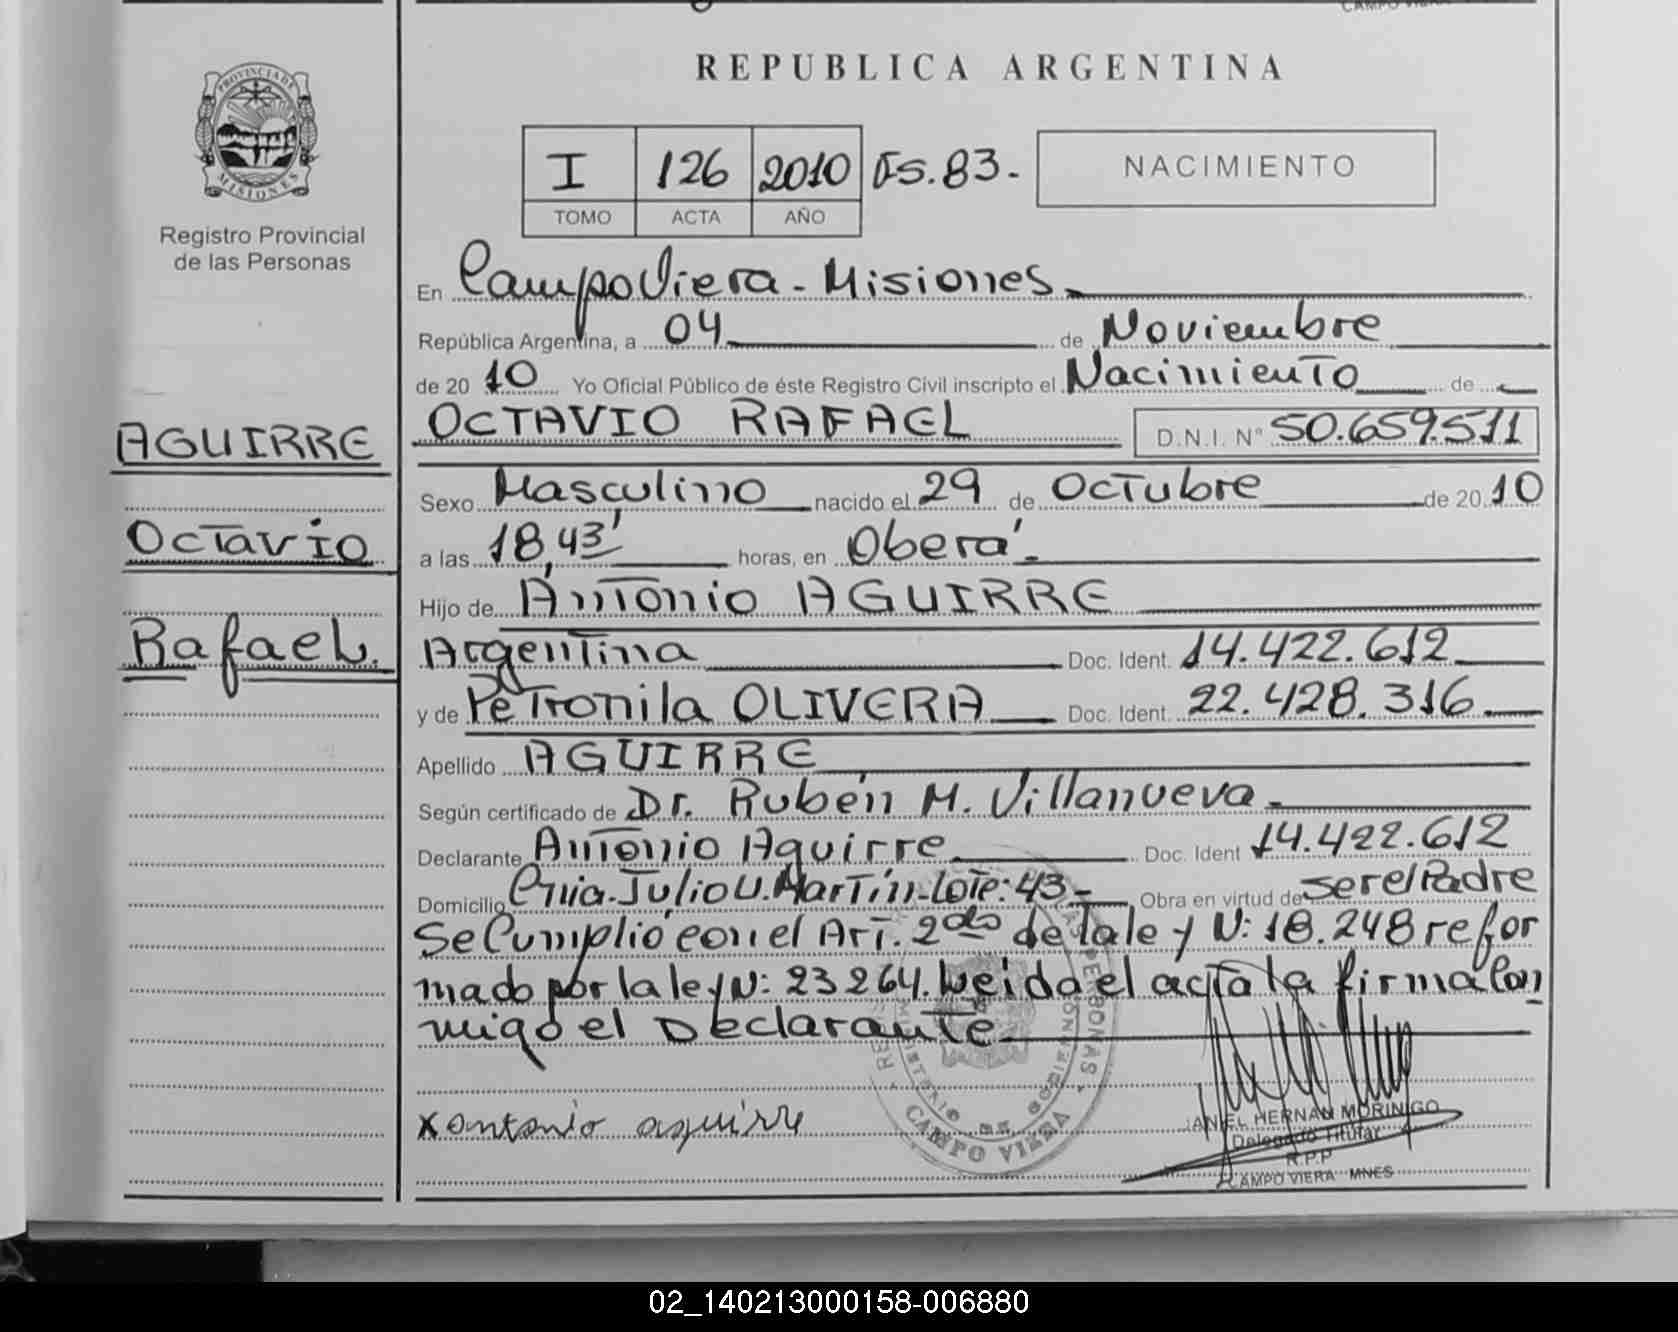 REPUBLICA ARGENTINA
PROVINCIA DE
MISIONES
Registro Provincial
de las Personas
I 126 2010 Fs. 83.-
TOMO ACTA AÑO
NACIMIENTO
En Campo Viera - Misiones.
República Argentina, a 04 de Noviembre
de 20 10 Yo Oficial Público de éste Registro Civil inscripto el Nacimiento de
OCTAVIO RAFAEL D.N.I. Nº 50.659.511
AGUIRRE
Octavio
Rafael.
Sexo Masculino nacido el 29 de Octubre de 20 10
a las 18,43' horas, en Oberá.-
Hijo de Antonio AGUIRRE
Argentina Doc. Ident. 14.422.612
y de Petronila OLIVERA Doc. Ident. 22.428.316
Apellido AGUIRRE
Según certificado de Dr. Rubén M. Villanueva.
Declarante Antonio Aguirre Doc. Ident 14.422.612
Domicilio Cnia. Julio U. Martín-Lote: 43.- Obra en virtud de ser el Padre
Se Cumplió con el Art. 2do de la ley N: 18.248 refor
mado por la ley N: 23264. Leida el acta la firma Con
migo el Declarante
x antonio aguirre
CAMPO VIERA
ANIEL HERNAN MORINIGO
Delegado Titular
R.P.P
CAMPO VIERA MNES
02_140213000158-006880